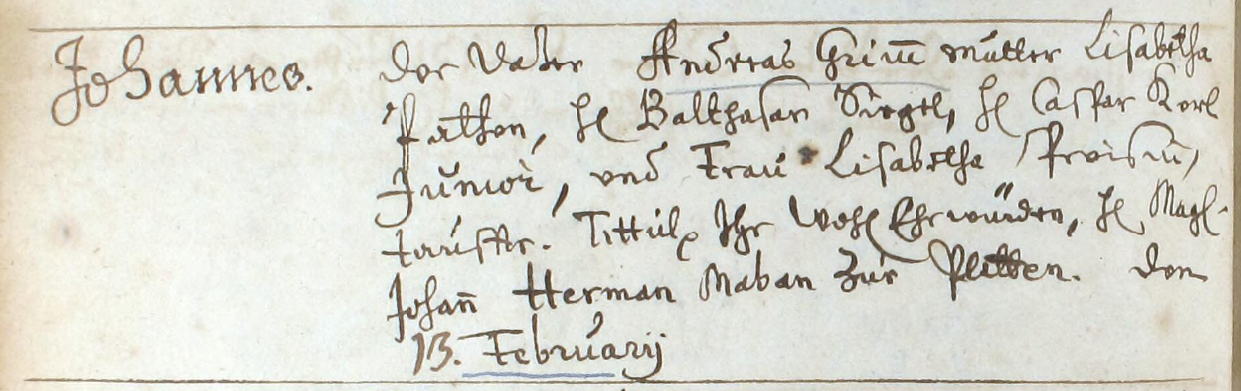 Johannes.
der Vatter Andreas Grim̅ mutter Lisabetha
Pathen, H Balthasar Siegel, H Caspar Kerl
Junior, und Frau Lisabetha
tauffer. Tittul Ihr Wohl Ehrwürden, H Mag.
Johan̅ Herman Maban zur Pletten. den
13. Februarij